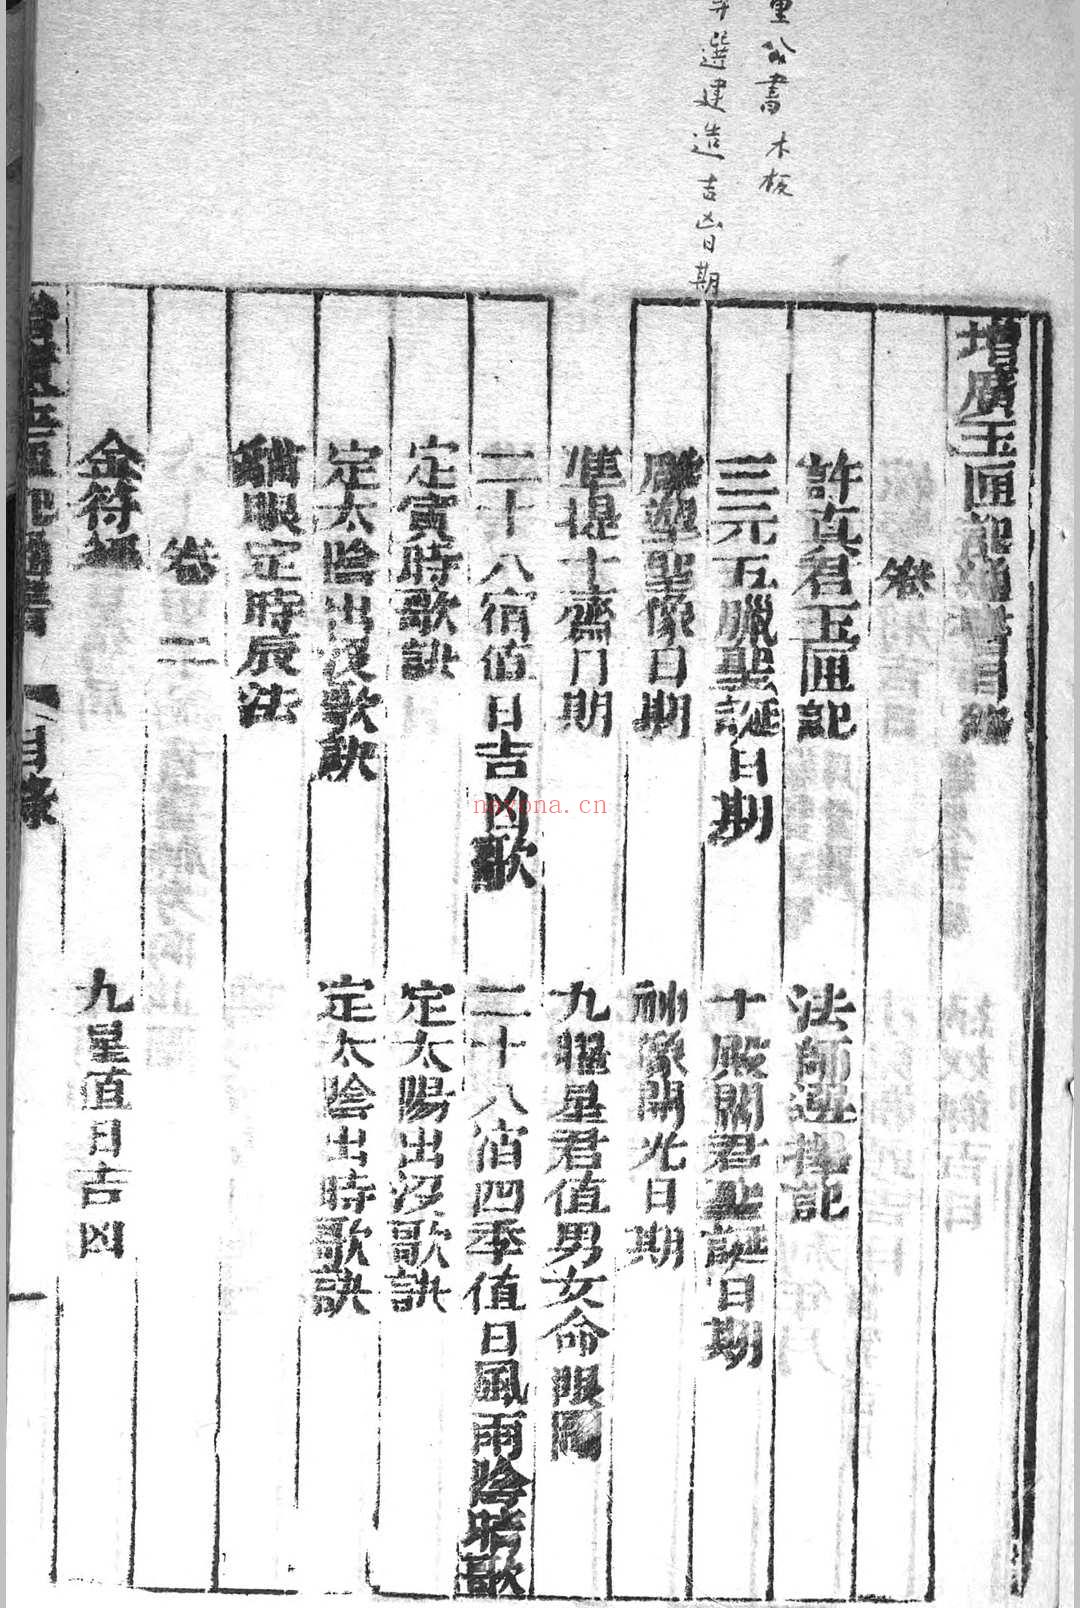 重㕣書木板
寻選建造吉凶日期
增廣玉匣記通書目錄
卷一
許真君玉匣記
法師選擇記
三元五臘聖誕日期
十殿閻君聖誕日期
雕塑聖像日期
神像開光日期
準提十齋日期
九曜星君值男女命限圖
二十八宿值日吉凶歌
二十八宿四季值日風雨陰晴歌
定寅時歌訣
定太陽出沒歌訣
定太陰出沒歌訣
定太陰出時歌訣
貓眼定時辰法
卷二
金符經
九星值日吉凶
增廣玉匣記通書
目錄
一
nayona.cn